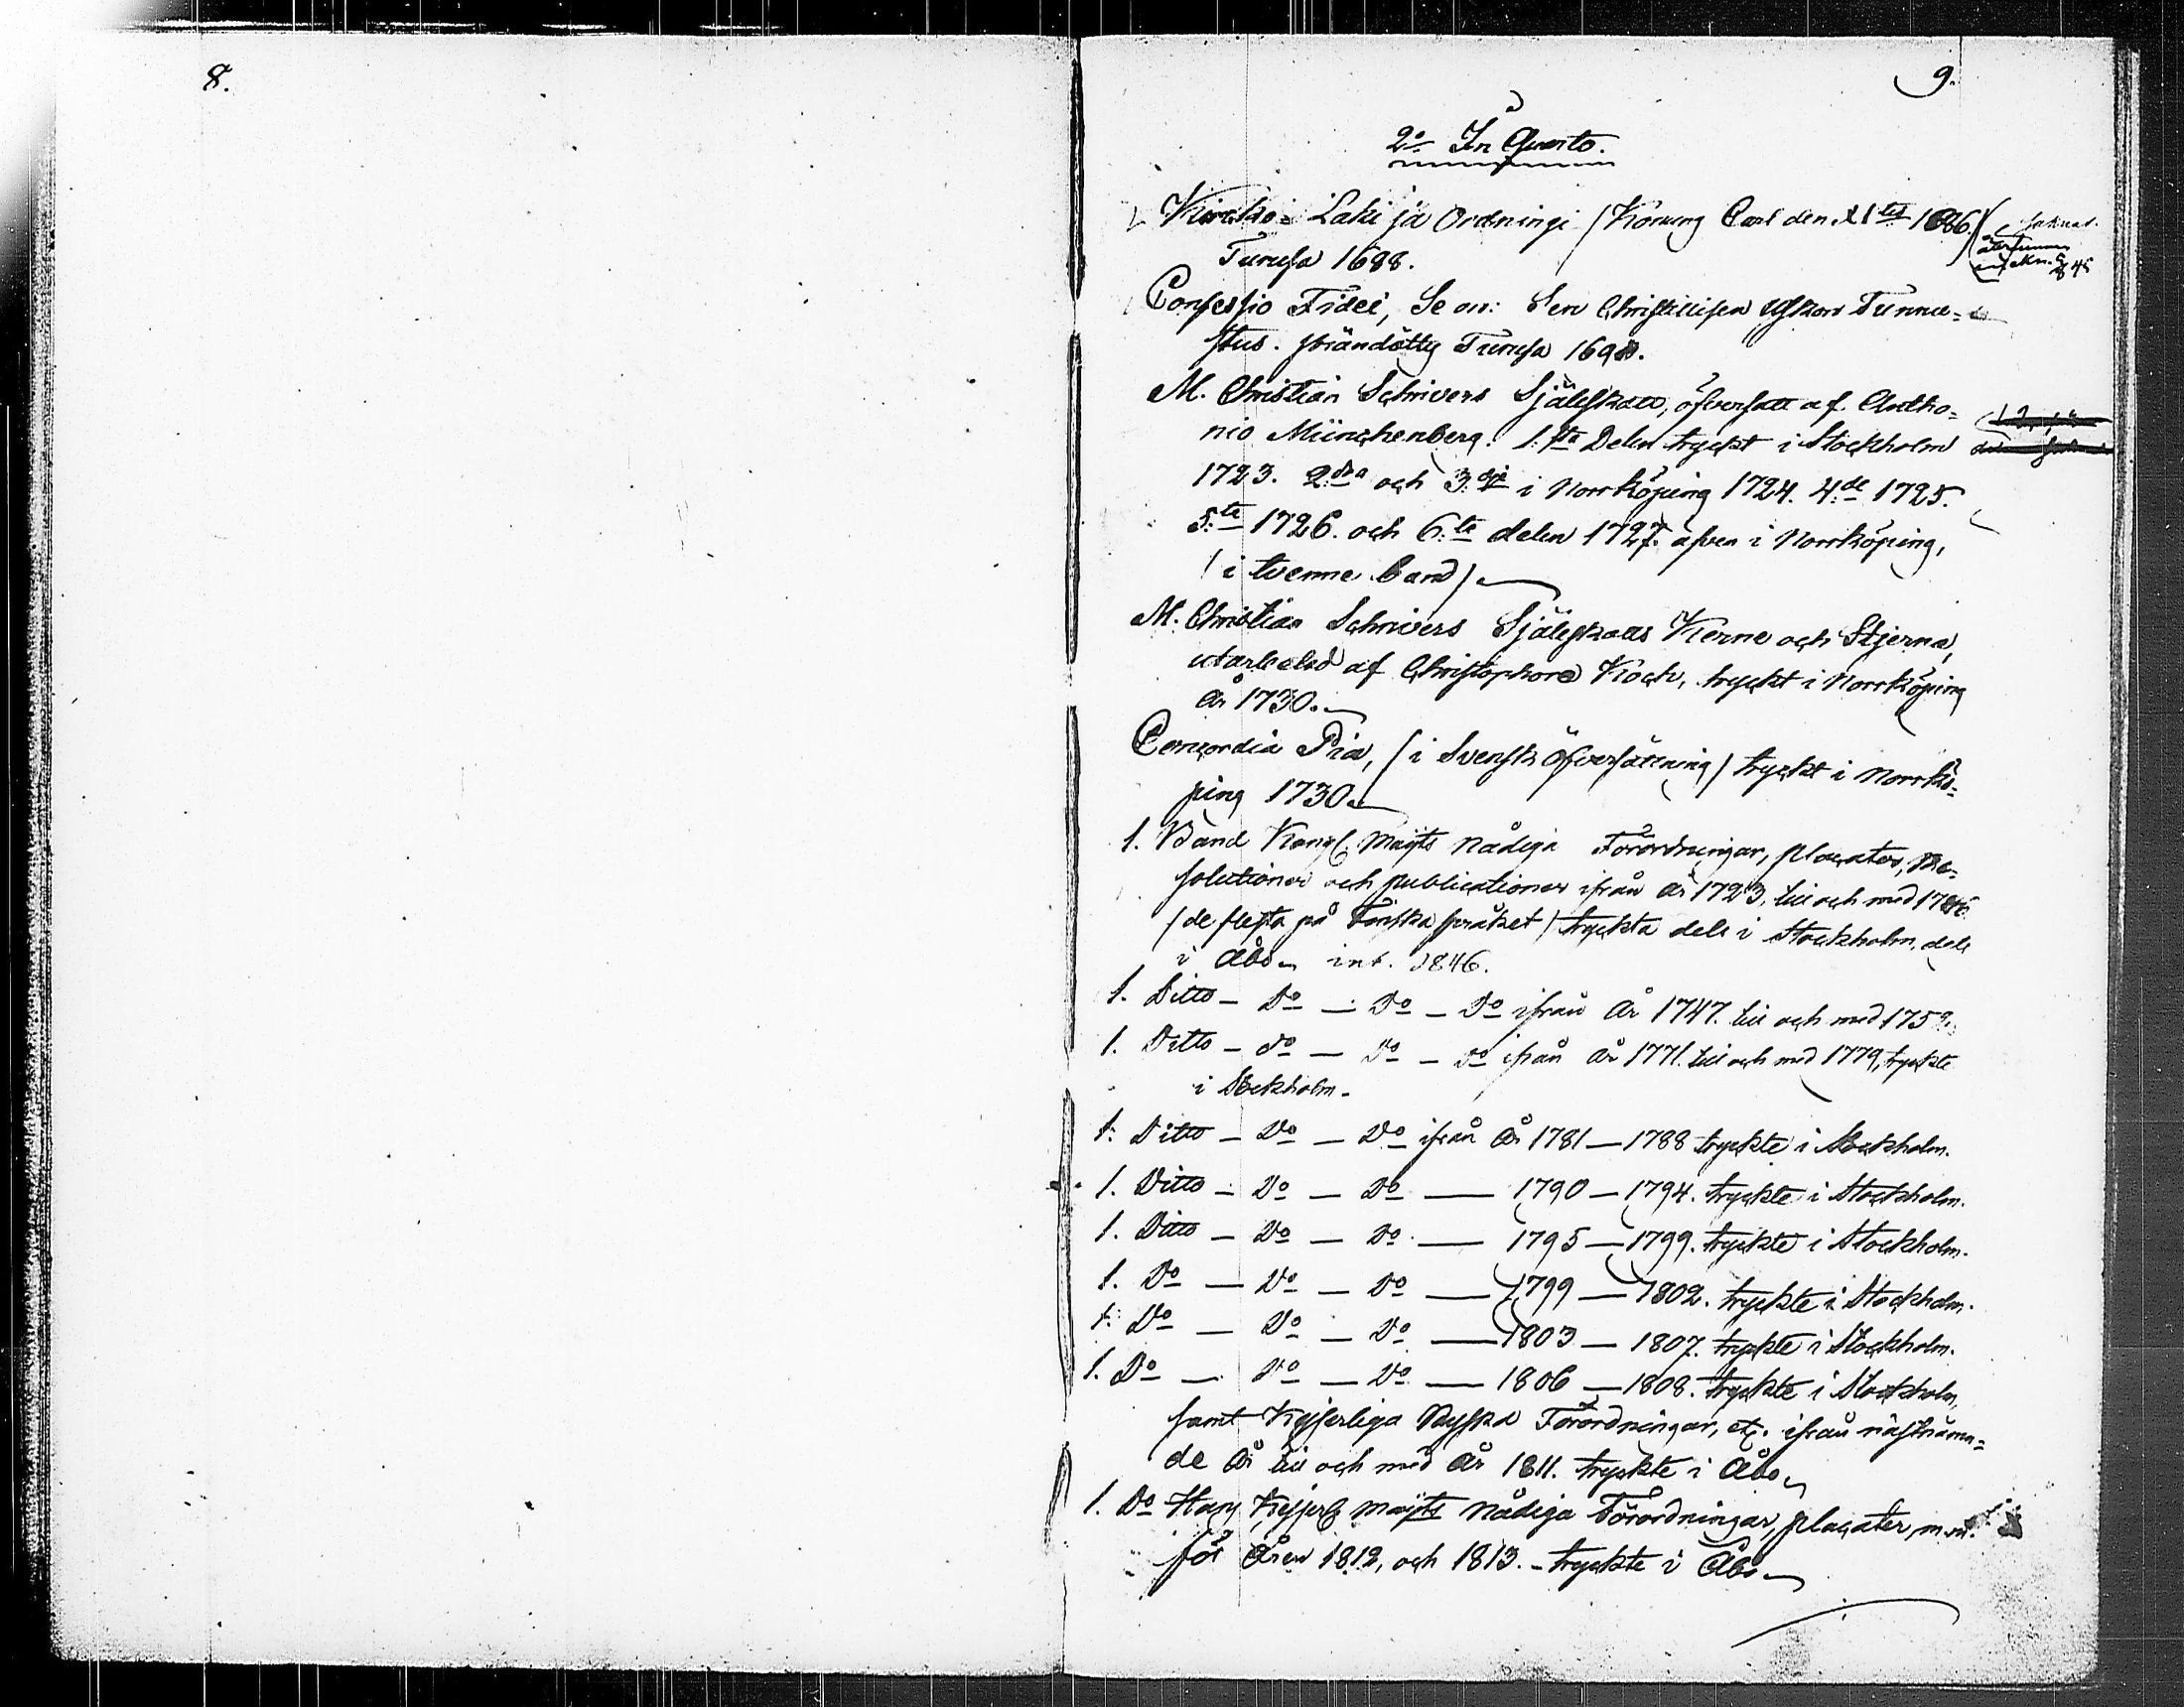 8.
9.
2o In Quarto.
Kircko-Laki ja Ordningi (Konung Carl den XI:tes 1686.)
saknas.
återfunnen
Turusa 1688.
Confessio Fidei, Se on: Sen Christillisen Uskon Tunnu=
stus. prändätty Turusa 1693.
M. Christian Schrivers Själaskatt, öfversatt af Antho=
nio Münchenberg. 1:sta Delen tryckt i Stockholm
1723. 2:dra och 3:dje i Norrköping 1724. 4:de 1725.
5:te 1726. och 6:te delen 1727. äfven i Norrköping,
(i tvenne band).
M. Christian Schrivers Själaskatts Kerne och Stjerna,
utarbetad af Christophoro Koch, tryckt i Norrköping
År 1730.
Concordia Pia, (i Svensk Öfversättning) tryckt i Norrkö=
ping 1730.
1. Band Kongl. Maÿts Nådiga Förordningar, placater, Re=
solutioner och publicationer ifrån år 1723, till och med 1746.
(de flesta på Finska språket) tryckta dels i Stockholm, dels
i Åbo int. 1846.
1. Ditto - Do - Do - Do ifrån År 1747. till och med 1759.
1. Ditto - do - Do - Do ifrån År 1771. till och med 1779, tryckte
i Stockholm.
1. Ditto - Do - Do ifrån År 1781 - 1788 tryckte i Stockholm.
1. Ditto - Do - Do - 1790 - 1794. tryckte i Stockholm.
1. Ditto - Do - Do - 1795 - 1799. tryckte i Stockholm.
1. Do - Do - Do - 1799 - 1802. tryckte i Stockholm.
1. Do - Do - Do - 1803 - 1807. tryckte i Stockholm.
1. Do - Do - Do - 1806 - 1808. tryckte i Stockholm,
samt Kejserliga Rysska Förordningar, etc. ifrån nästnämn=
de År till och med År 1811. tryckte i Åbo
1. Do Hans Kejserl Maÿts Nådiga Förordningar, placater, m.m.
för Åren 1812, och 1813. - tryckte i Åbo